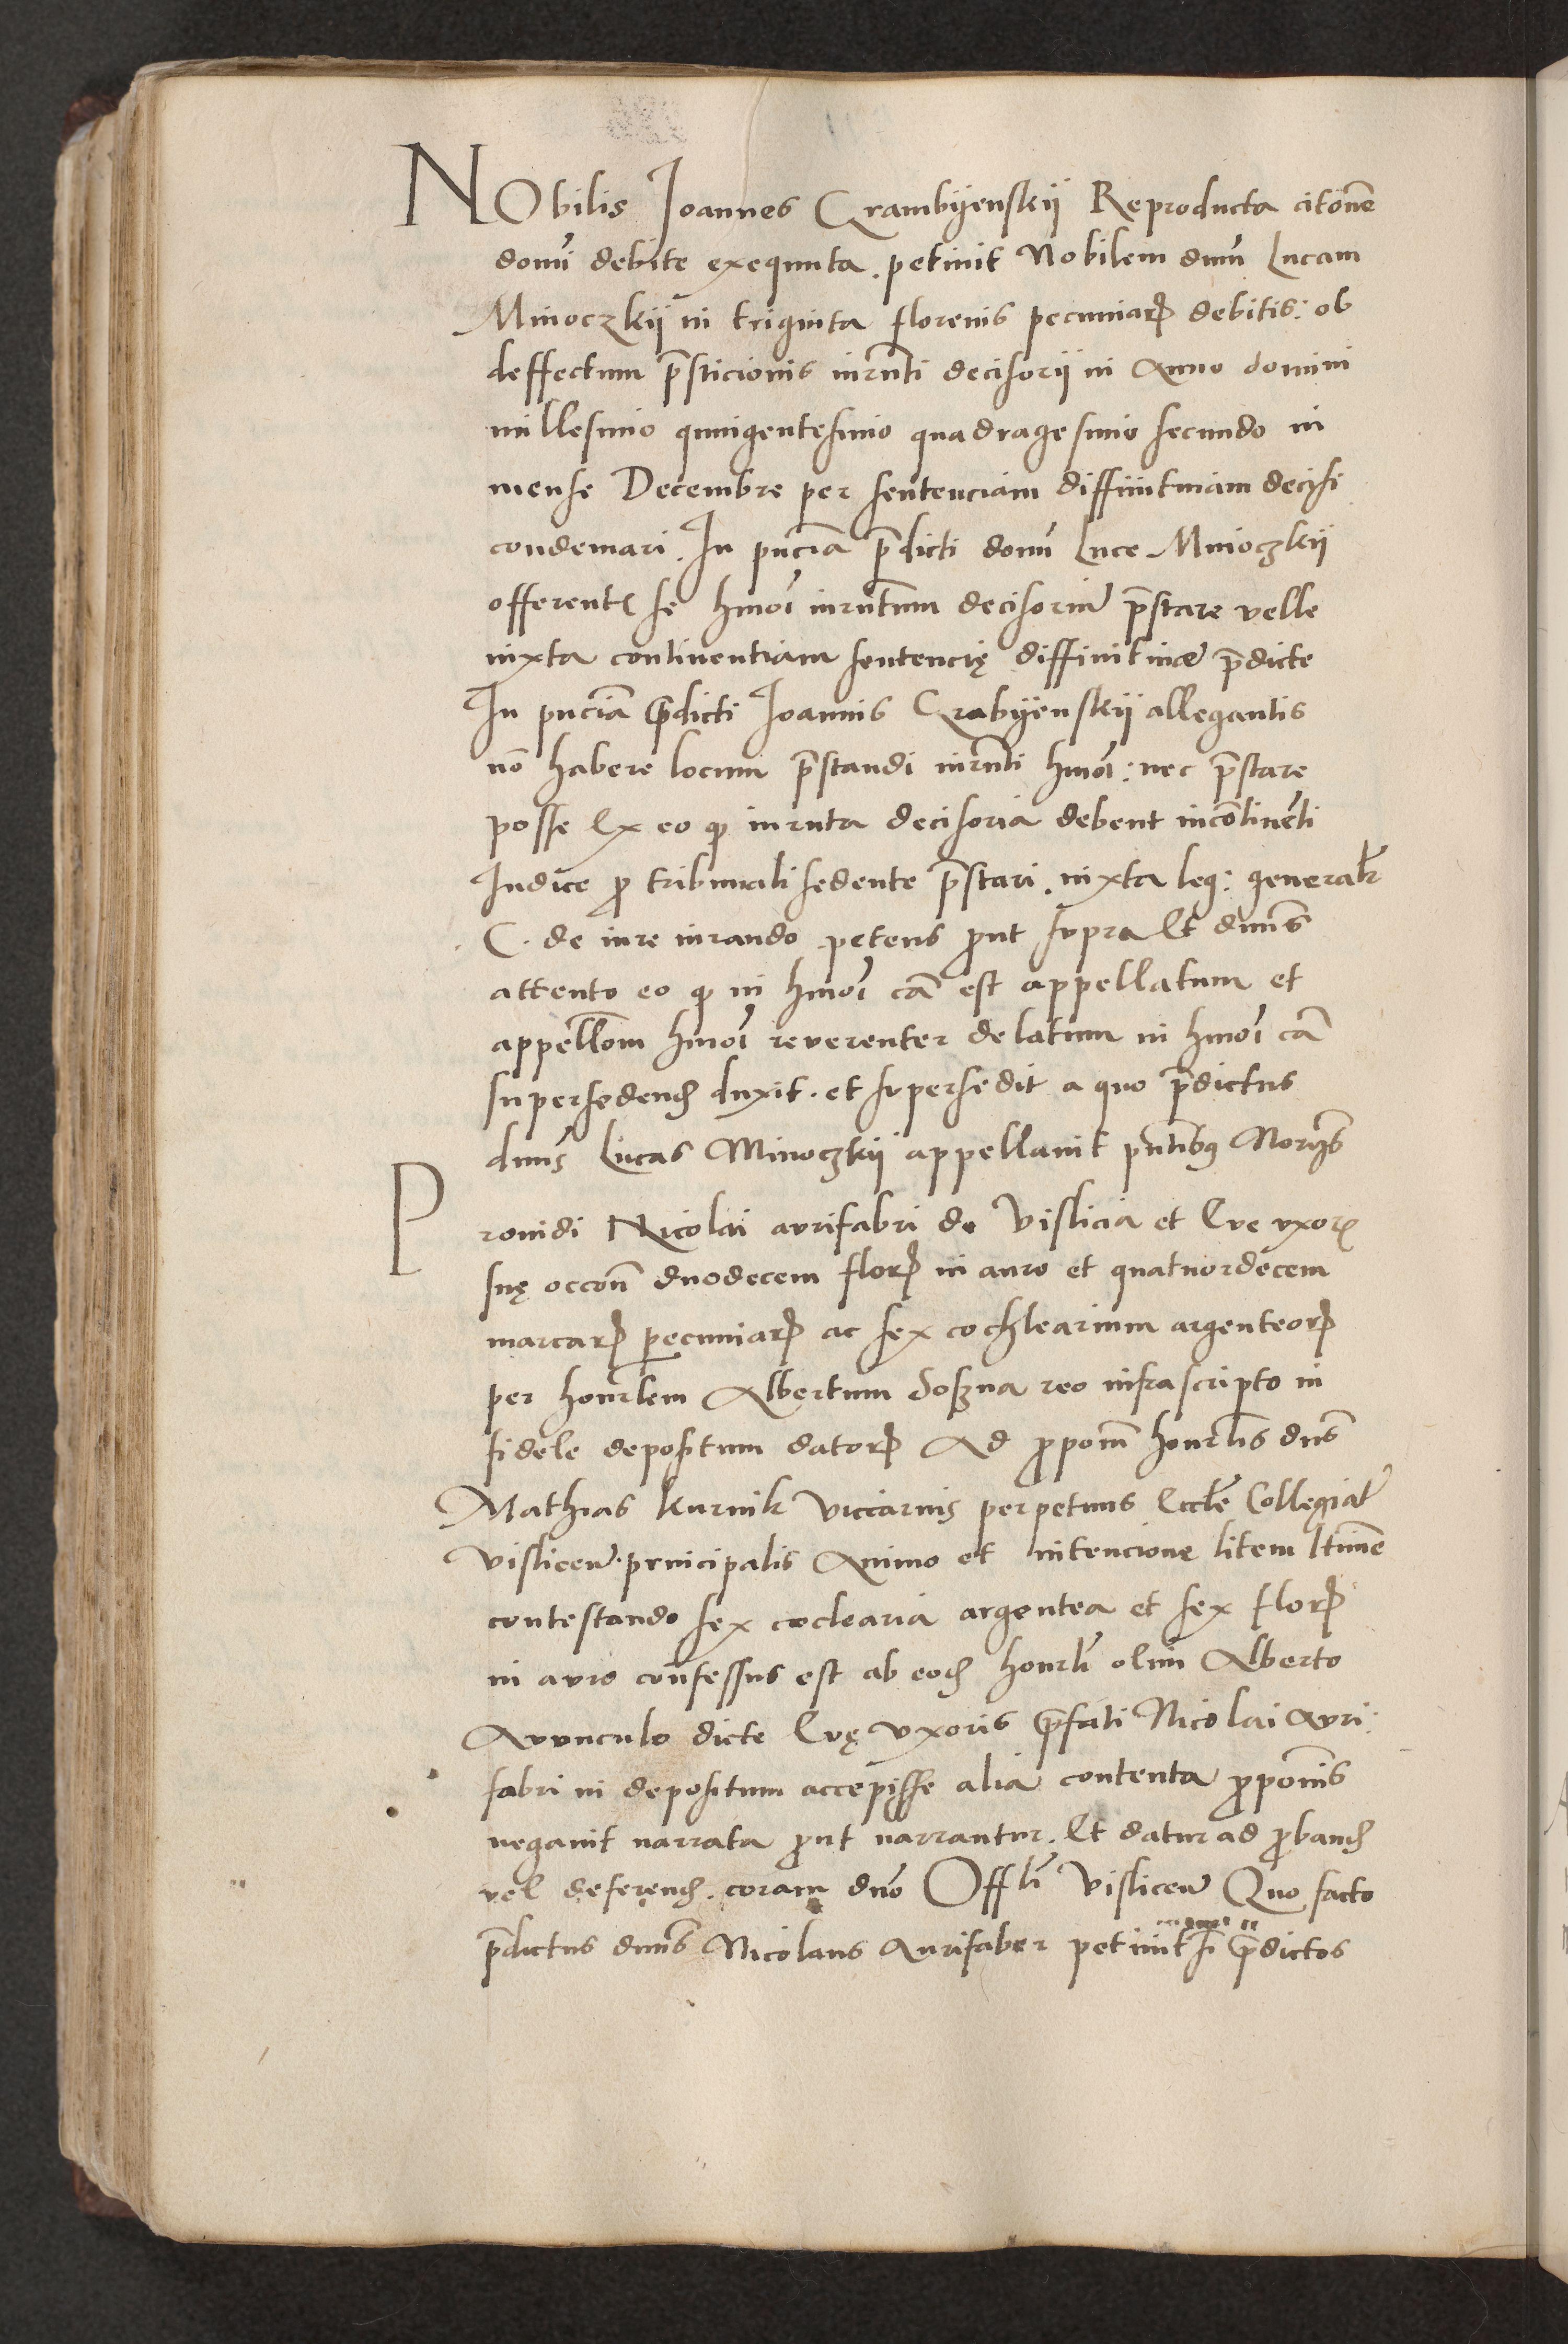 NObilis Joannes Grambyenskij Reproducta citōne
domī debite exequuta. petiuit Nobilem dnm̄ Lucam
Mnioczkij in triginta florenis pecuniarꝝ debitis: ob
deffectum p̄sticionis iurn̄ti decisorij in Anno domini
millesimo quingentesimo quadragesimo secundo in
mense Decembre per sentenciam diffinitiuam decisi
condemnari. In pn̄cia p̄dicti domī Luce Mnioczkij
offerentꝭ se hmōi iurn̄tum decisoriū prestare velle
iuxta continentiam sentencię diffinitiuæ p̄dicte
In pn̄cia p̄dicti Joannis Grabyenskij allegantis
nō habere locum p̄standi iurn̄ti hmōi: nec p̄stare
posse Ex eo ꝙ iurn̄ta decisoria debent incōtinēti
Judice ꝓ tribunali sedente p̄stari. iuxta leg: generalr̄
C. de iure iurando petens ꝓut supra Et dnn̄s
attento eo ꝙ in hmōi cā est appellatum et
appellōm hmōi reuerenter delatum in hmōi cā
supersedendꝭ duxit. et supersedit a quo p̄dictus
dnn̄s Lucas Mnioczkij appellauit pn̄tibꝰ Norijs
Prouidi Nicolai aurifabri de Vislicia et Eue vxorꝭ
suę occōn̄ duodecem florꝝ in auro et quatuordecem
marcarꝝ pecuniarꝝ ac sex cochlearium argenteorꝝ
per honrlēm Albertum Doszna reo infrascripto in
fidele depositum datorꝝ Ad ꝓpōm̄ honrlīs dns̄
Mathias Kurnik viccarius perpetuus Ecclē Collegiatꝭ
Visliceñ. principalis Animo et intencione litem ltim̄e
contestando sex coclearia argentea et sex florꝝ
in auro confessus est ab eodꝭ honrlī olim Alberto
Avunculo dicte Evę vxoris p̄fati Nicolai Auri:
fabri in depositum accepisse alia contenta ꝓpōnis
negauit narrata ꝓut narrantur. Et datur ad ꝓbandꝭ
vel deferendꝭ. coram dnō Offlī Visliceñ Quo facto
p̄dictus dnn̄s Nicolaus Aurifaber petiuit p̄dictos